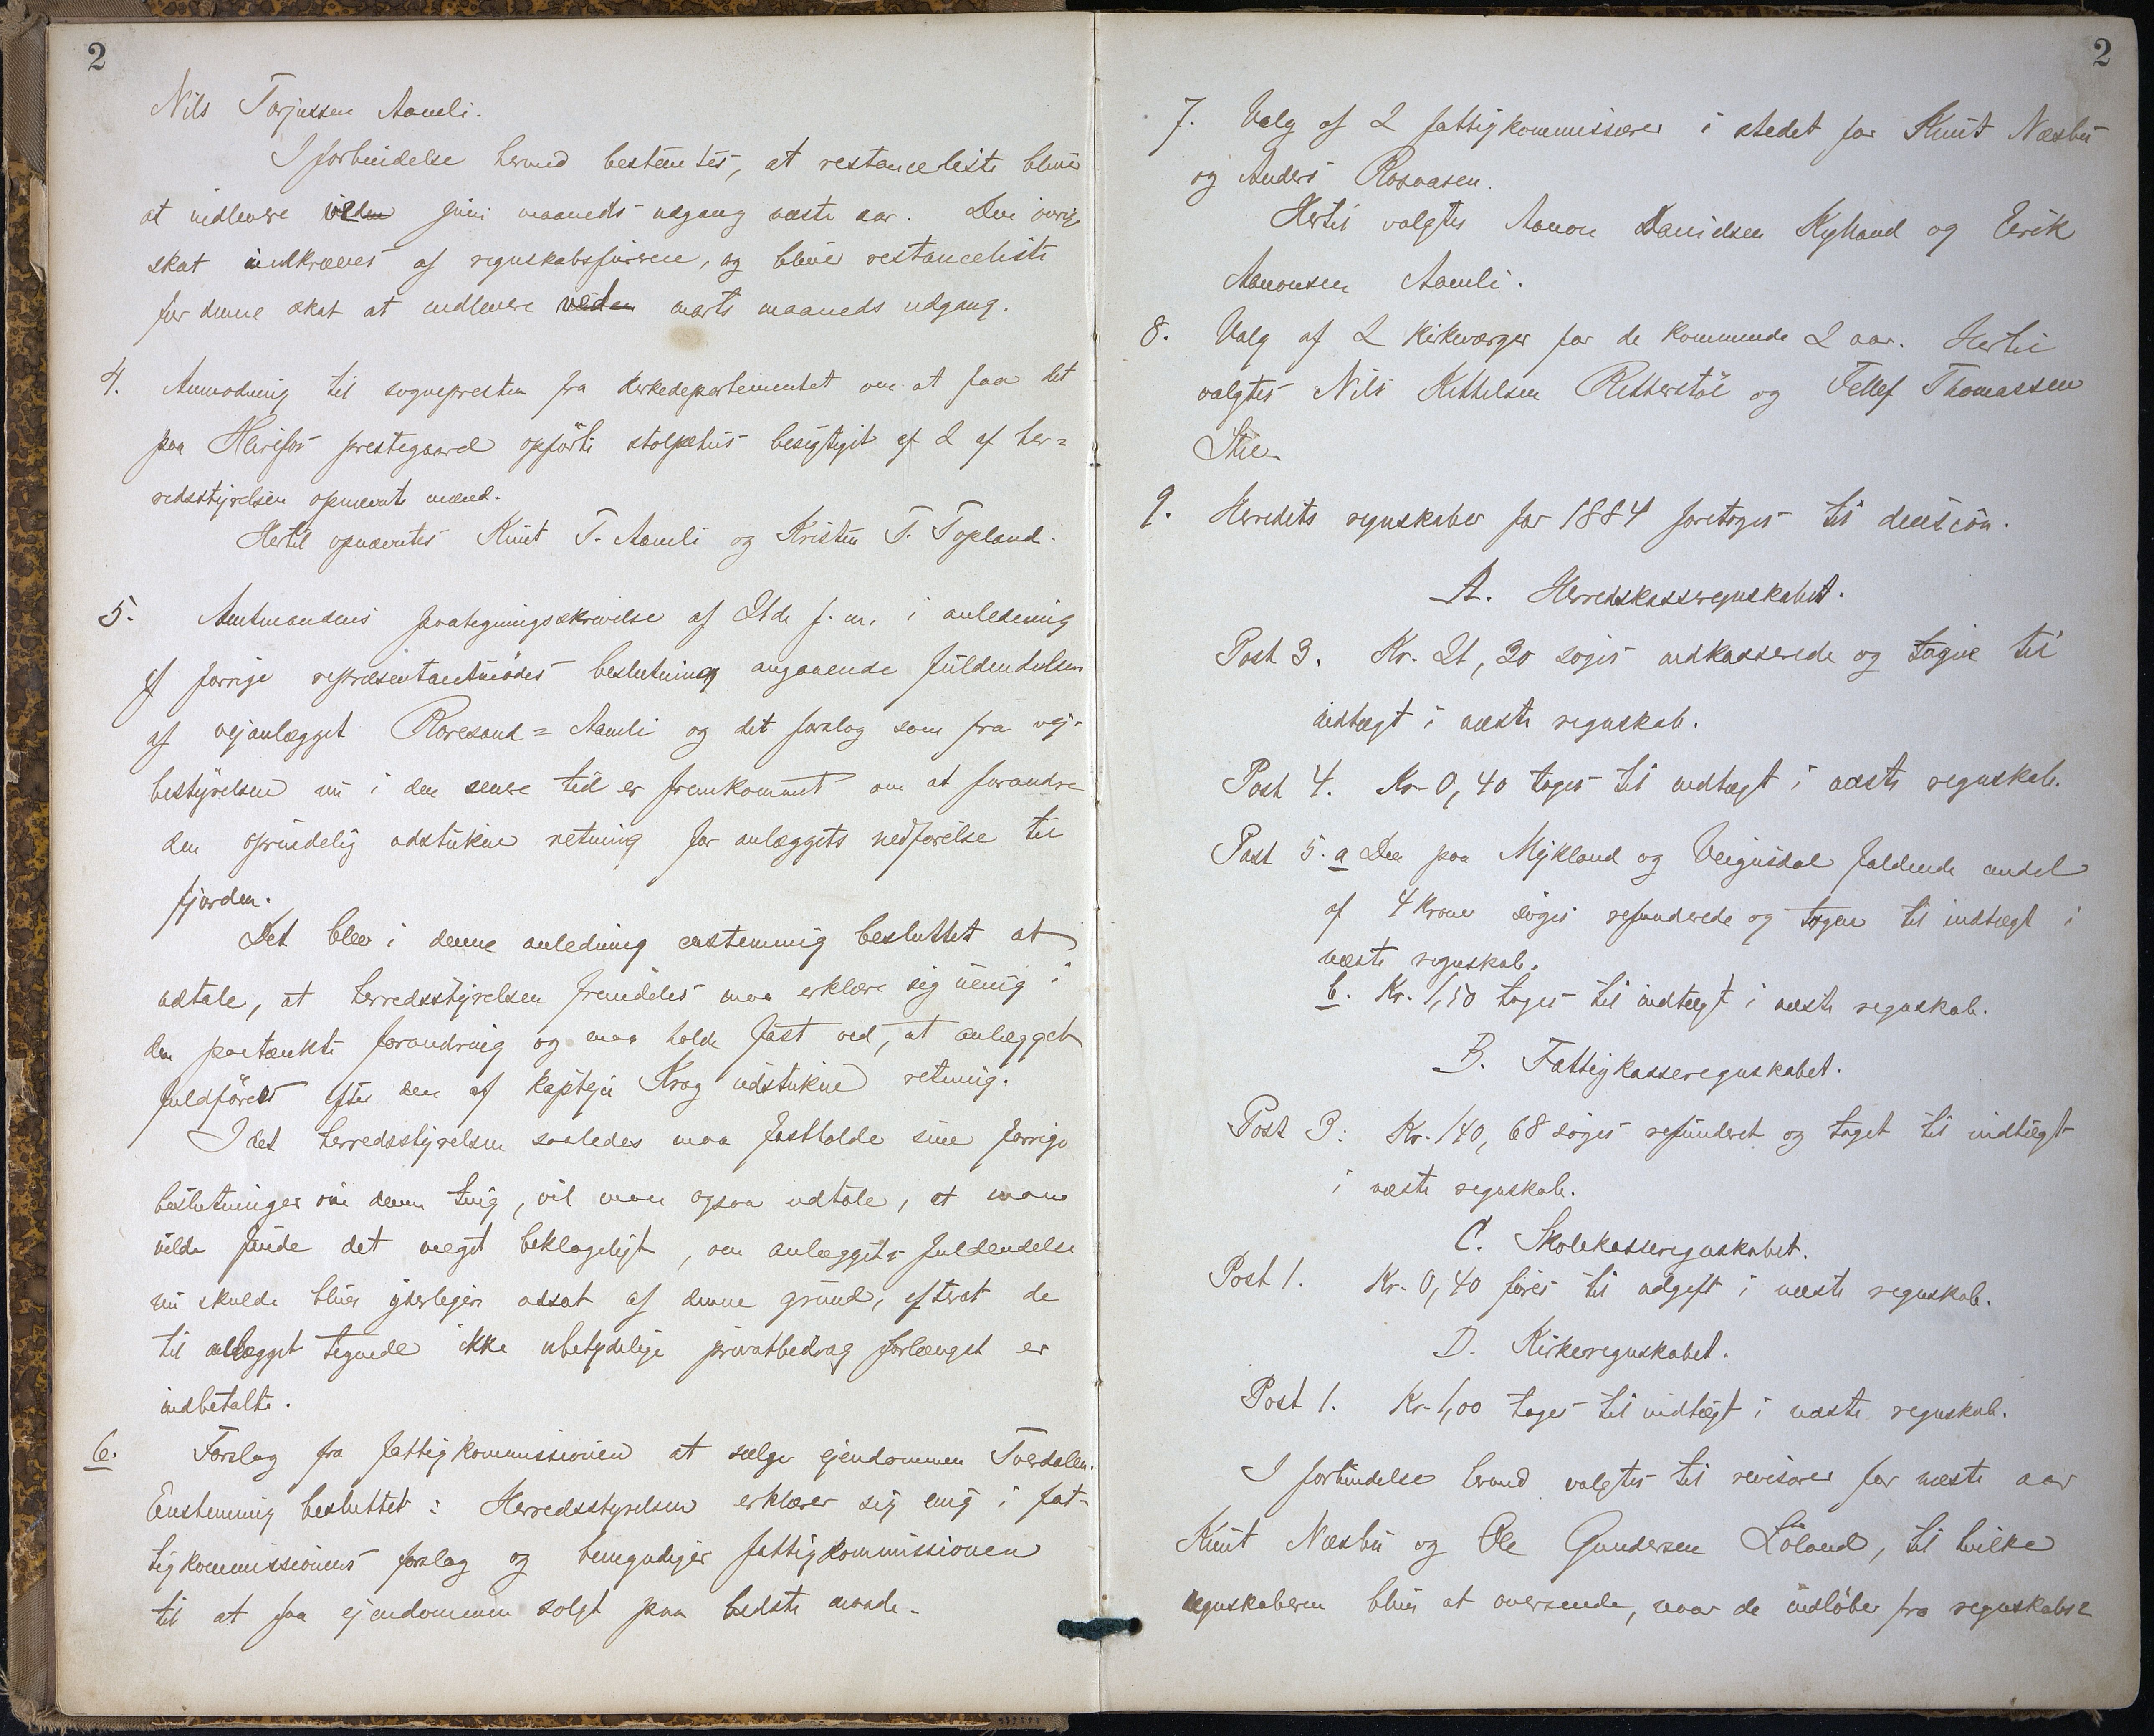 2
Nils Torjussen Aamli.
I forbindelse hermed bestemtes, at restanceliste bliver
at indlevere inden juni maaneds udgang næste aar. Den øvrige
skat indkræves af regnskabsføreren, og bliver restanceliste
for denne skat at indlevere inden marts maaneds udgang.
4. Anmodning til sognepresten fra kirkedepartementet om at faa det
paa Herefos prestegaard opförte stolpehus besigtiget af 2 af her=
redsstyrelsen opnævnte mænd.
Hertil opnævntes Knut T. Aamli og Kristen T. Topland.
5. Amtmandens paategningsskrivelse af 21de f. m. i anledning
af forrige repræsentantmödes beslutning angaaende fuldendelsen
af vejanlægget Roresand = Aamli og det forslag som fra vej-
bestyrelsen nu i den senere tid er fremkommet om at forandre
den oprindelig udstukne retning for anlæggets nedförelse til
fjorden.
Det blev i denne anledning enstemmig besluttet at
udtale, at herredsstyrelsen fremdeles maa erklære sig uenig i
den paatænkte forandring og maa holde fast ved, at anlægget
fuldföres efter den af kaptejn Krag udstukne retning.
Idet herredsstyrelsen saaledes maa fastholde sine forrige
beslutninger om denne ting, vil man ogsaa udtale, at man
vilde finde det meget beklageligt, om anlæggets fuldendelse
nu skulde blive yderligere udsat af denne grund, efterat de
til anlægget tegnede ikke ubetydelige privatbedrag forlængst er
indbetalte.
6. Forslag fra fattigkommissionen at sælge ejendommen Tverdalen.
Enstemmig besluttet: Herredsstyrelsen erklærer sig enig i fat-
tigkommissionens forslag og bemyndiger fattigkommissionen
til at faa ejendommen solgt paa bedste maade.
2
7. Valg af 2 fattigkommissærer i stedet for Knut Næsbu
og Anders Rosvasen.
Hertil valgtes Aanon Danielsen Kylland og Eerik
Aanonsen Aamli.
8. Valg af 2 kirkeværger for de kommende 2 aar. Hertil
valgtes Nils Kittilsen Retterstöl og Tellef Thomassen
Stie.
9. Heredets regnskaber for 1884 foretoges til decision.
A. Herredskasseregnskabet.
Post 3. Kr. 21,20 søges indkasserede og tagne til
indtægt i næste regnskab.
Post 4. Kr. 0,40 tages til indtægt i næste regnskab.
Post 5. a Den paa Mykland og Veigusdal faldende andel
af 4 kroner søges refunderede og tagne til indtægt i
næste regnskab.
b. Kr. 1,50 tages til indtægt i næste regnskab.
B. Fattigkasseregnskabet.
Post 3: Kr. 140,68 søges refunderet og taget til indtægt
i næste regnskab.
C. Skolekasseregnskabet.
Post 1. Kr. 0,40 føres til udgift i næste regnskab.
D. Kirkeregnskabet.
Post 1. Kr. 1,00 tages til indtægt i næste regnskab.
I forbindelse hermed valgtes til revisorer for næste aar
Knut Næsbu og Ole Gundersen Löland, til hvilke
regnskaberne bliver at oversende, naar de indløber fra regnskabs=